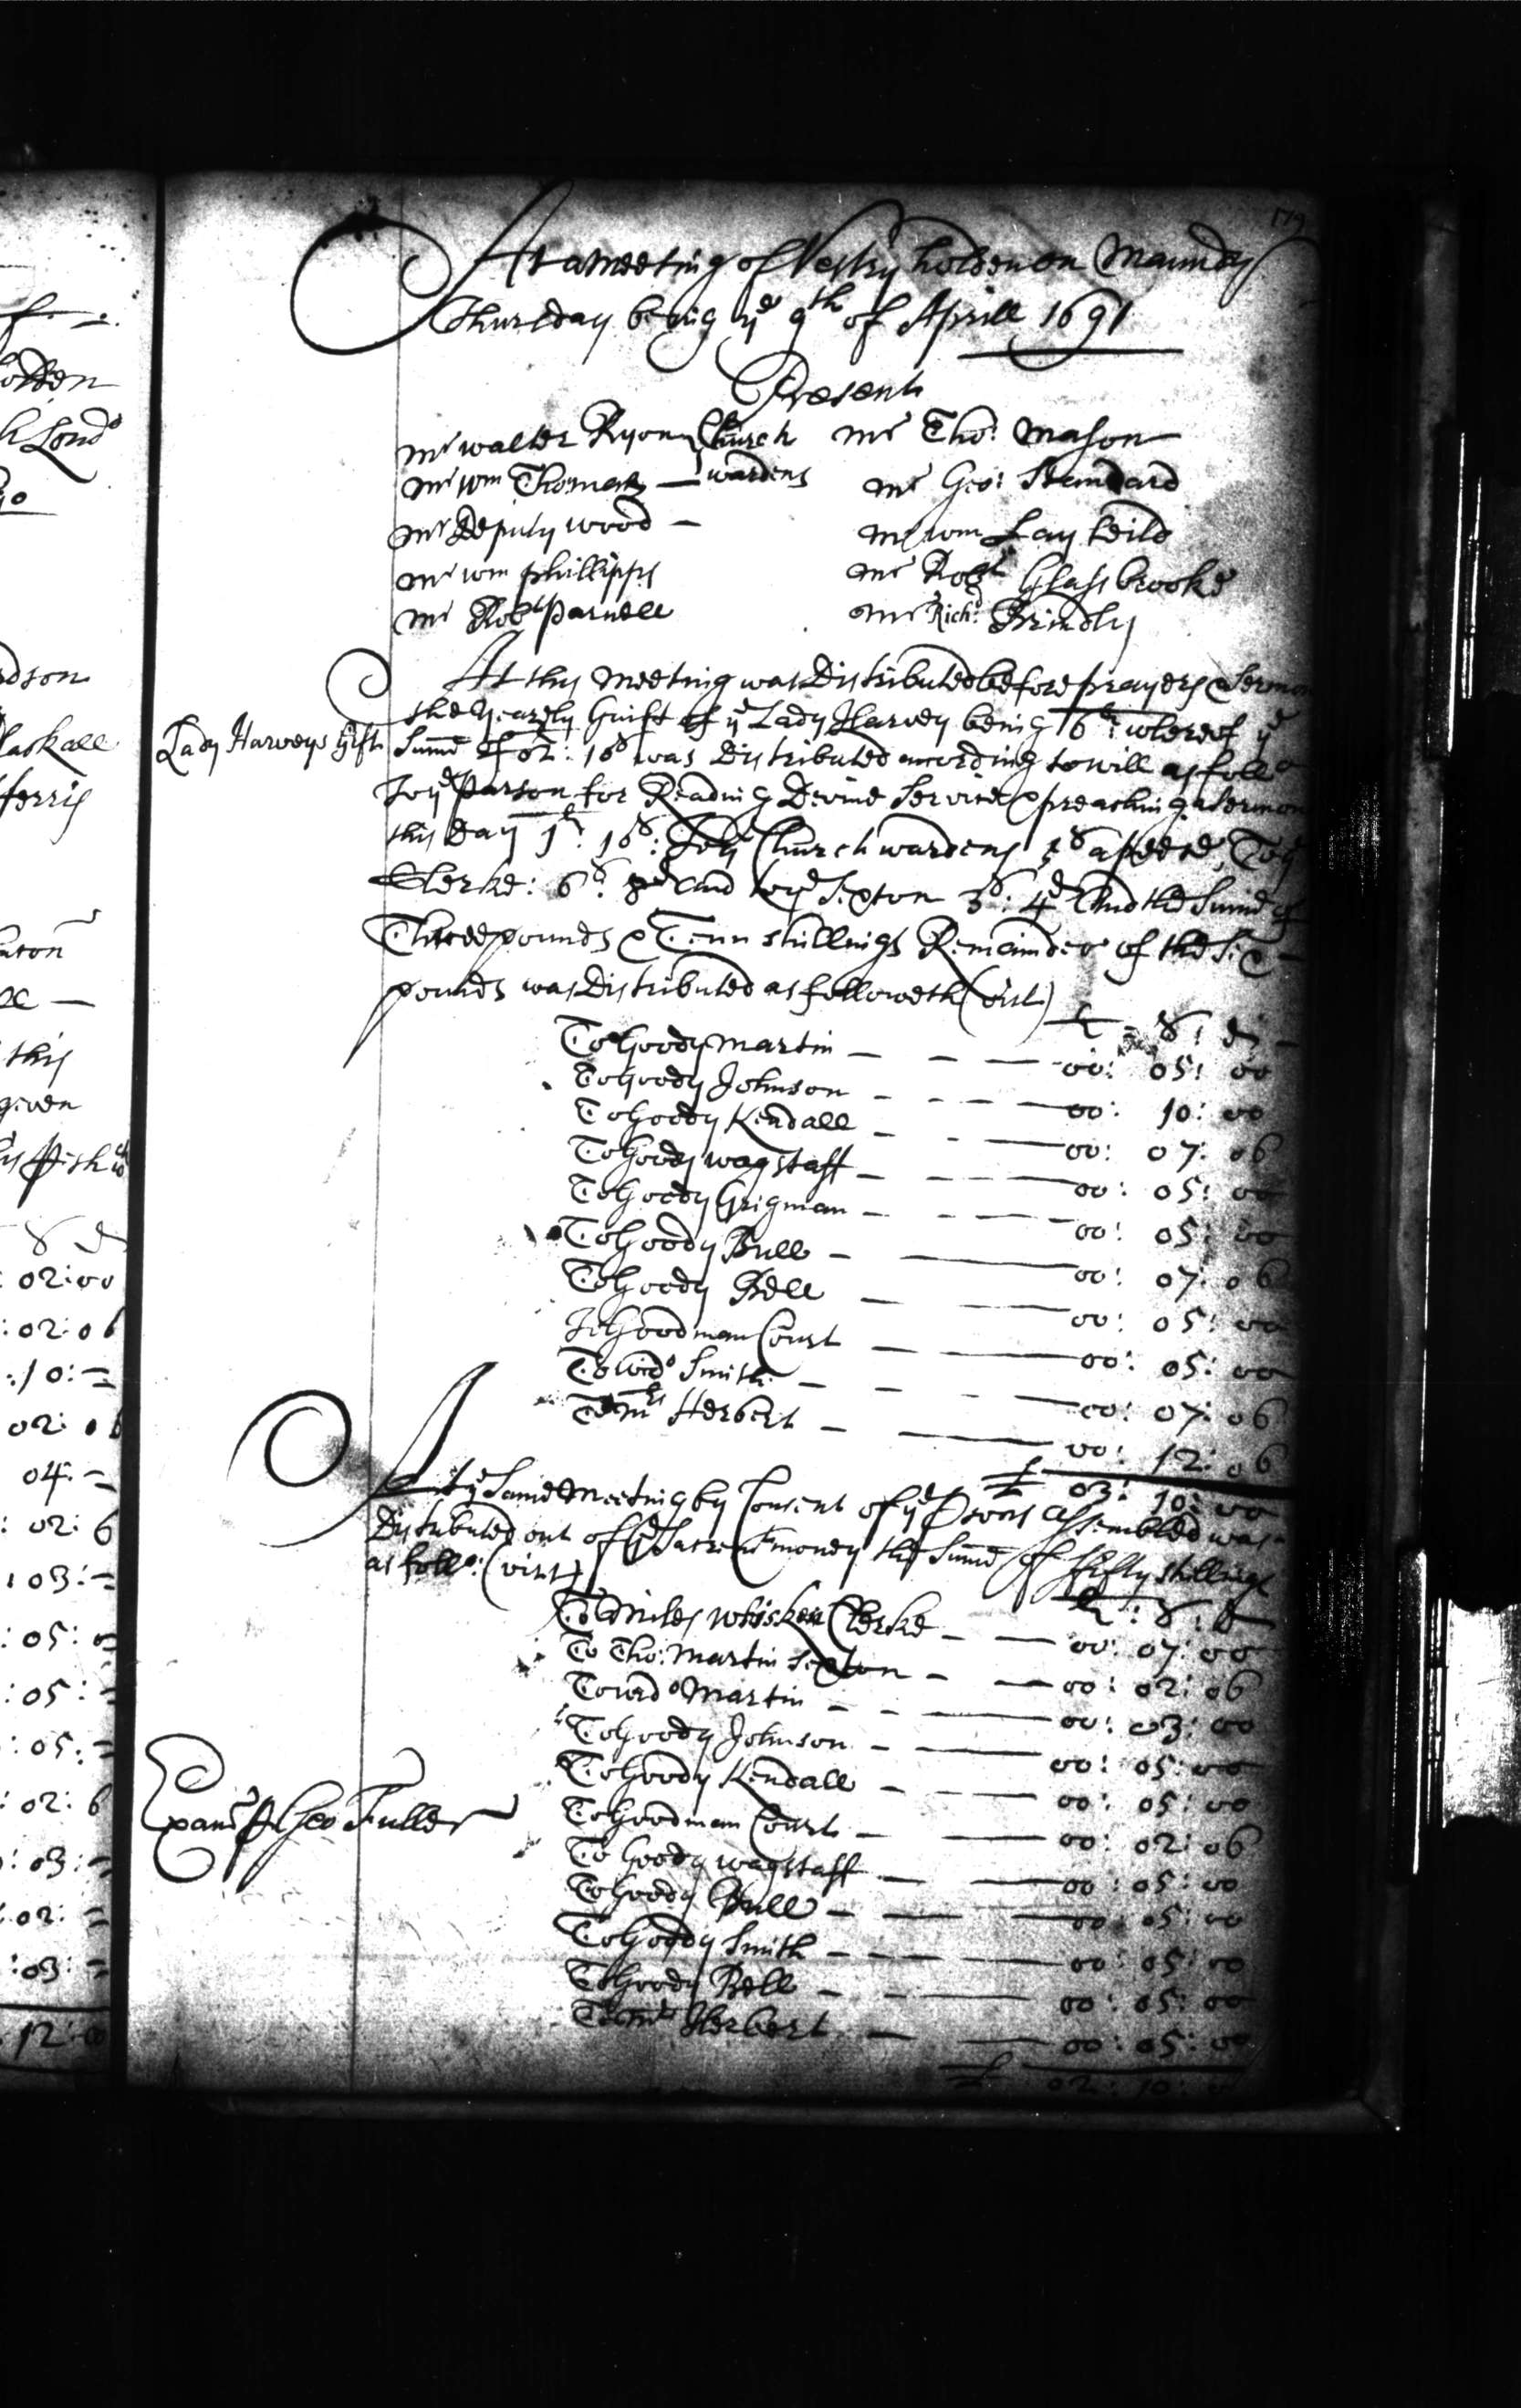 179
At a Meeting of Vestry holden on Maundy
Thursday being ye 9th of Aprill 1691
Present
Mr Walter Ryon Church
Mr Wm Thomas — wardens
Mr Deputy Wood —
Mr Wm Phillipps
Mr Robt Parnell
Mr Tho: Mason
Mr Geo: Standard
Mr Wm Layfeild
Mr Robt Glassbrooke
Mr Richd: Brindly
Lady Harveys Gift
At this Meeting was Distributed before prayers & Sermon
the Yearely Guift of ye Lady Harvey being 6li: whereof ye
Summe of 02: 10s was Distributed according to will as follo
To ye Parson for Reading Devine Service & preaching a Sermon
this Day 1li: 10s: To ye Churchwardens 5s apeece, To ye
Clerke: 6s: 8d and to ye Sexton 3s: 4d And the Summe of
Three pounds & Tenn shillings Remainder of the Six
pounds was Distributed as followeth (vizt)
£ : s : d
To Goody Martin — — — 00: 05: 00
To Goody Johnson — — — 00: 10: 00
To Goody Kendall — — — 00: 07: 06
To Goody Wagstaff — — — 00: 05: 00
To Goody Grigman — — — 00: 05: 00
To Goody Bull — — 00: 07: 06
To Goody Bell — — 00: 05: 00
To Goodman Court — — 00: 05: 00
To Wido Smith — — — 00: 07: 06
To Mrs Herbert — — 00: 12: 06
£ 03: 10: 00
At ye Same Meeting by Consent of ye Psons Assembled was
Distributed out of ye Sacremt money the Summe of fifty shillings
as follo: (vizt)
£ : s : d
To Miles Whisken Clerke — — 00: 07: 00
To Tho: Martin Sexton — — 00: 02: 06
To Wido Martin — — — 00: 03: 00
To Goody Johnson — — 00: 05: 00
To Goody Kendall — — 00: 05: 00
To Goodman Court — — 00: 02: 06
To Goody Wagstaff — — 00: 05: 00
To Goody Bull — — — 00: 05: 00
To Goody Smith — — — 00: 05: 00
To Goody Bell — — — 00: 05: 00
To Mrs Herbert — — 00: 05: 00
£ 02: 10: 00
Examd p Geo Fuller